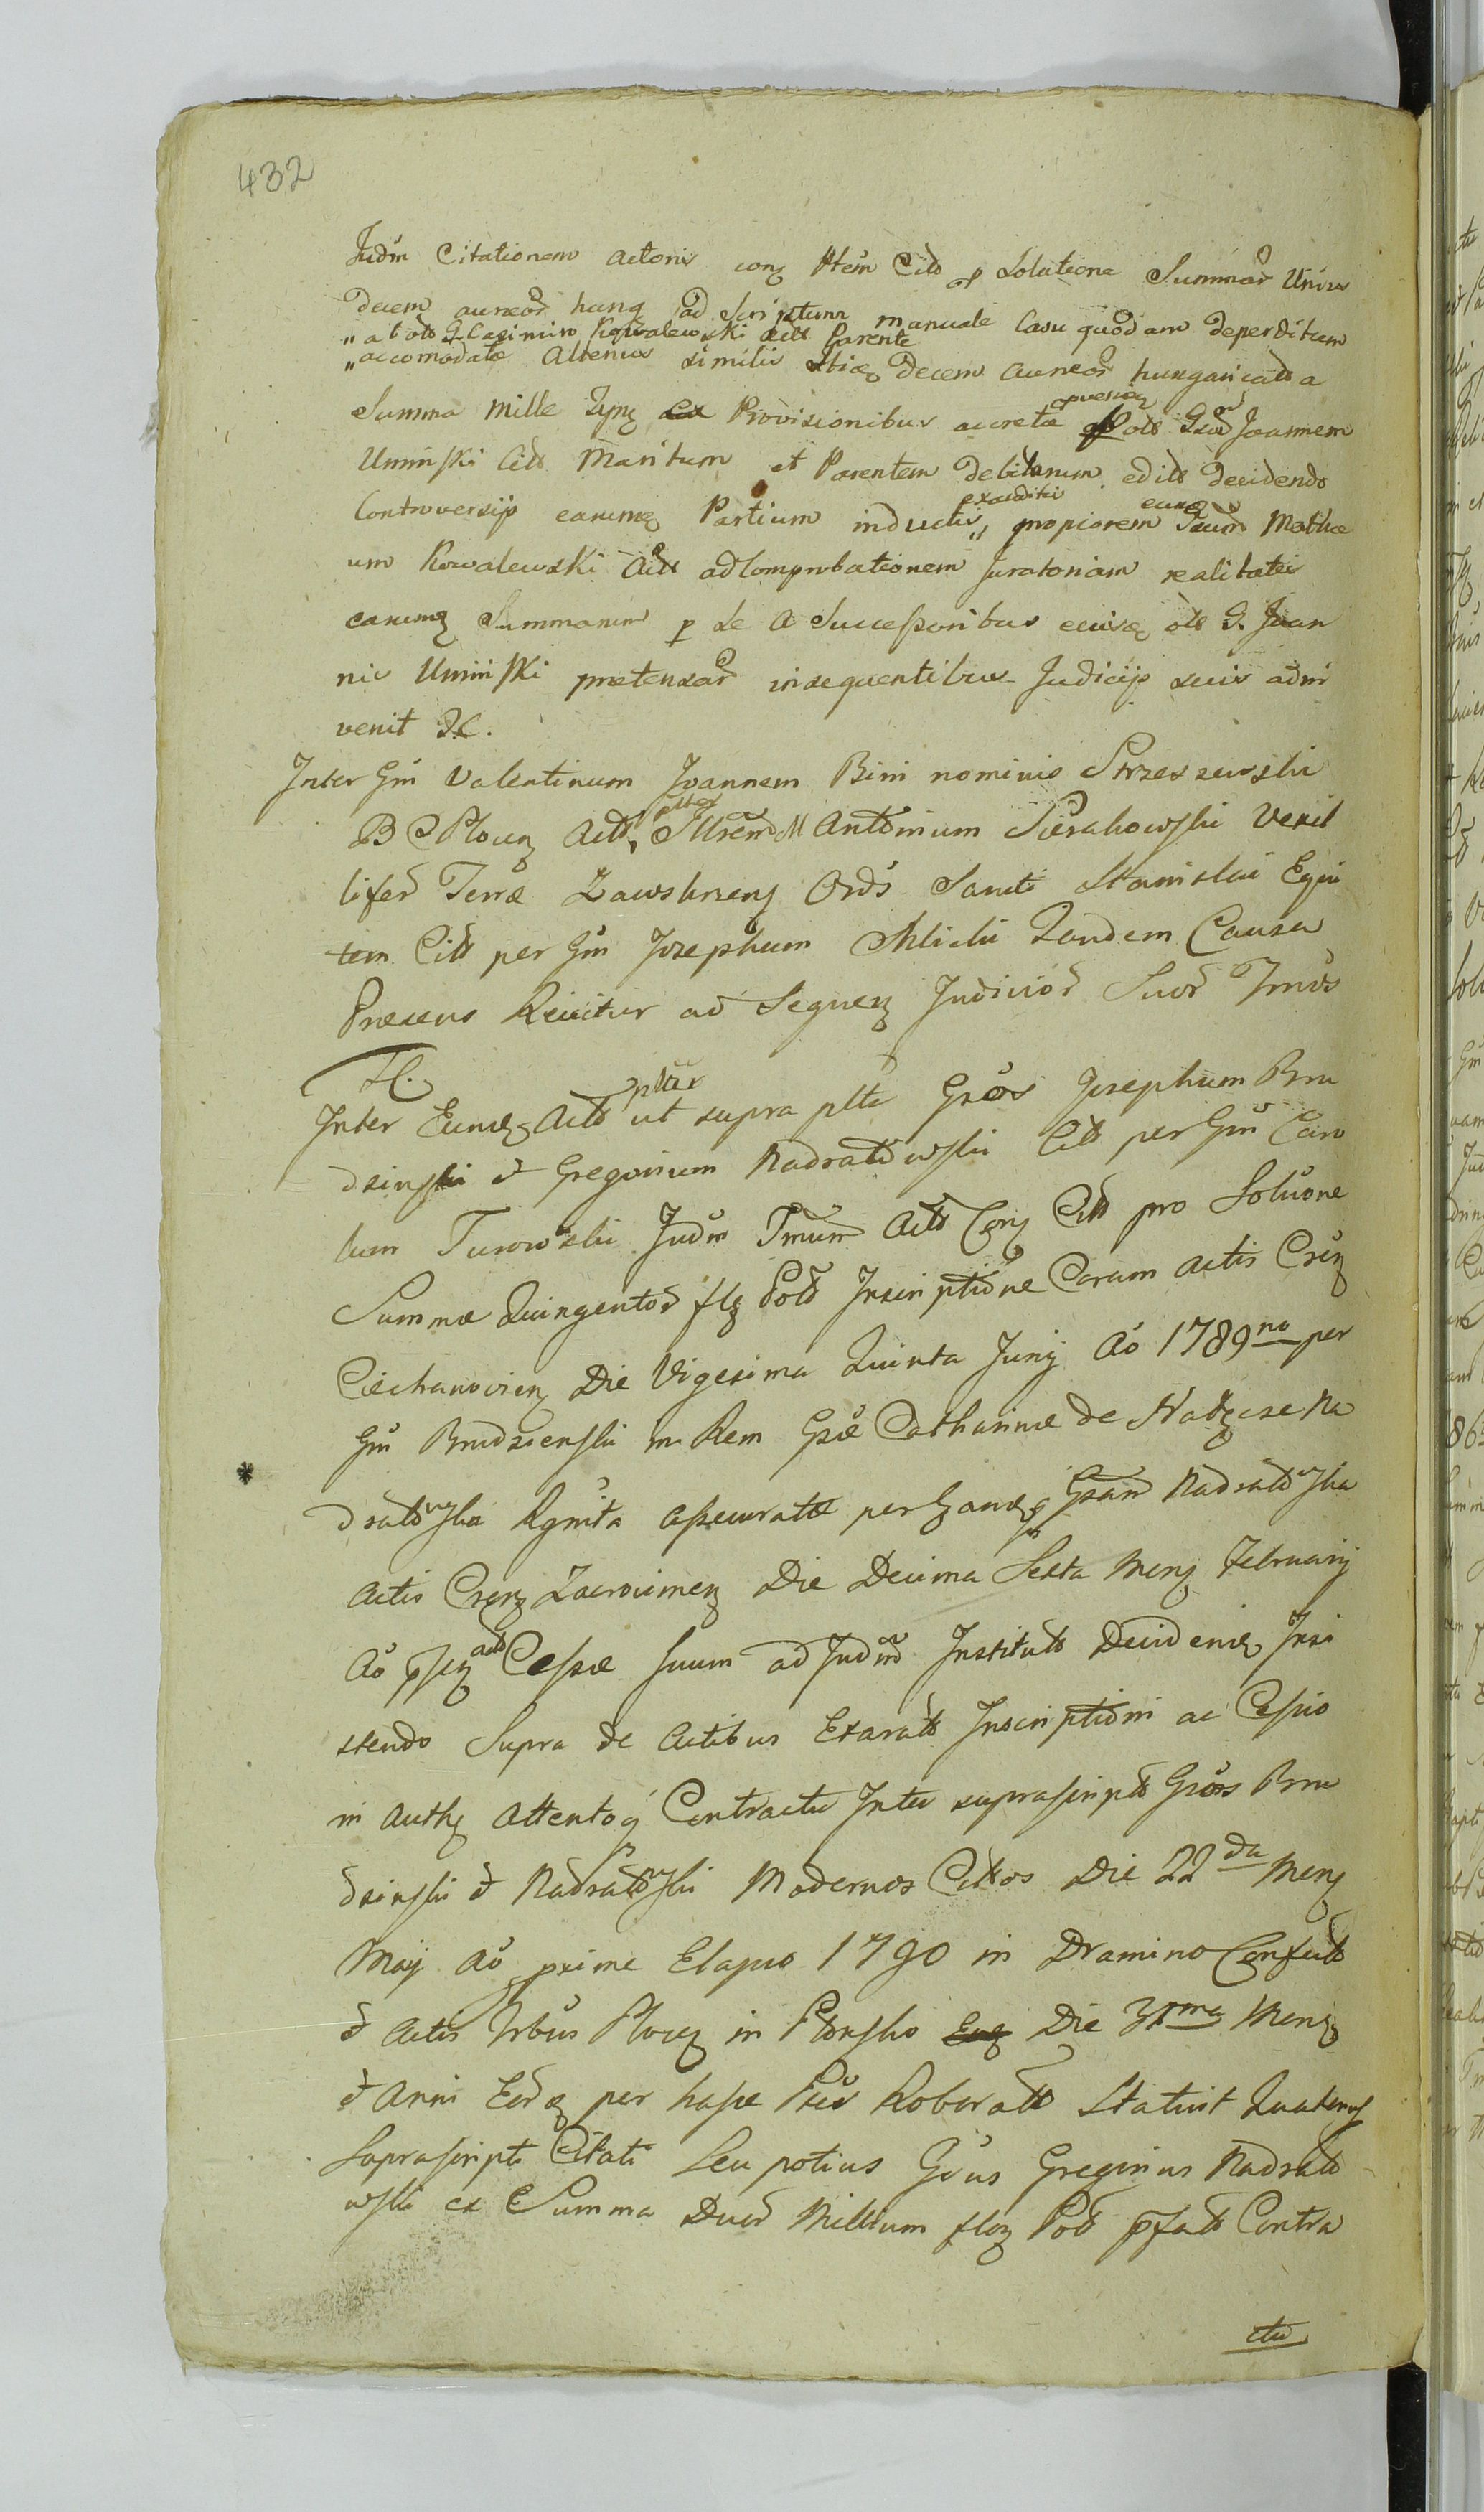 432
Judm Citationem actoris conq Ptem Citt p Solutione Summar Unius
decem aureor hung ad Scriptum manuale Casu quodam deperditum
"ab olt G Casimiro Kowalewski Actt Parente
"accomodatæ Altenus similis Stiæ decem Aureor hungaricatt a
Summa mille Tynq ex Provisionibus accretæ olt Gsū Joannem
Uminski Citt Maritum et Parentem debitorum edito decidendo
Controversijs earumq Partium inductis, exauditis propiorem eunq Gsum Mathæ
um Kowalewski Actt ad Comprobationem Juratoriam realitatis
earumq Summarum p Se a Successoribus eiusq olt G. Joan
nis Uminski prætensar insequentibus Judicijs suis adin
venit H.
Inter Gm Valentinum Joannem Bini nominis Strzeszewski
B C Plocq Actt, plte Illrem M Antonium Sierakowski Vexil
lifer Terræ Zawskrzenq Ords Sancti Stanislai Equi
tem Citt per Gm Josephum Mlicki Tandem Causa
Præsens Reiicitur ad Sequenq Judicior Suor Trmos
H.
Inter Eumq Actt ut supra pltr plte Gsos Josephum Bru
dzinski et Gregorium Nadratowski Citt per Gm Caro
lum Turowski Judm Trmum Actt Conq Citt pro Solutione
Summæ Quingentor flq Polt Inscriptione Coram Actis Crenq
Ciechanovienq Die Vigesima Quinta Junij Ao 1789no per
Gm Brudzienski in Rem Gsæ Catharinæ de Nadratowska
dratowska Rgnita assecuratæ per Eamq Gsam Nadratowska
Actis Crenq Zacrocimenq Die Decima Sexta Menq Februarij
Ao pntq actt Cessæ suum ad Judm Institutt Decidenq Insi
stendo Supra de Actibus Exaratt Inscriptioni ac Cessio
ni Authq Attentoq Contractu Inter suprascriptt Gsos Bru
dzinski et Nadratowski Modernos Cittos Die 22da Menq
Maij Ao proxime Elapso 1790 in Dramino Confectt
et Actis Trbus Plocq in Plonsko Die 31ma Menq
et Anni Eorq per hasce Ptes Roboratt Statuit Quatenq
Suprascripti Citati Seu potius Gsus Gregorius Nadrato
wski ex Summa Duor Millium floq Polt pfatt Contra
ctu